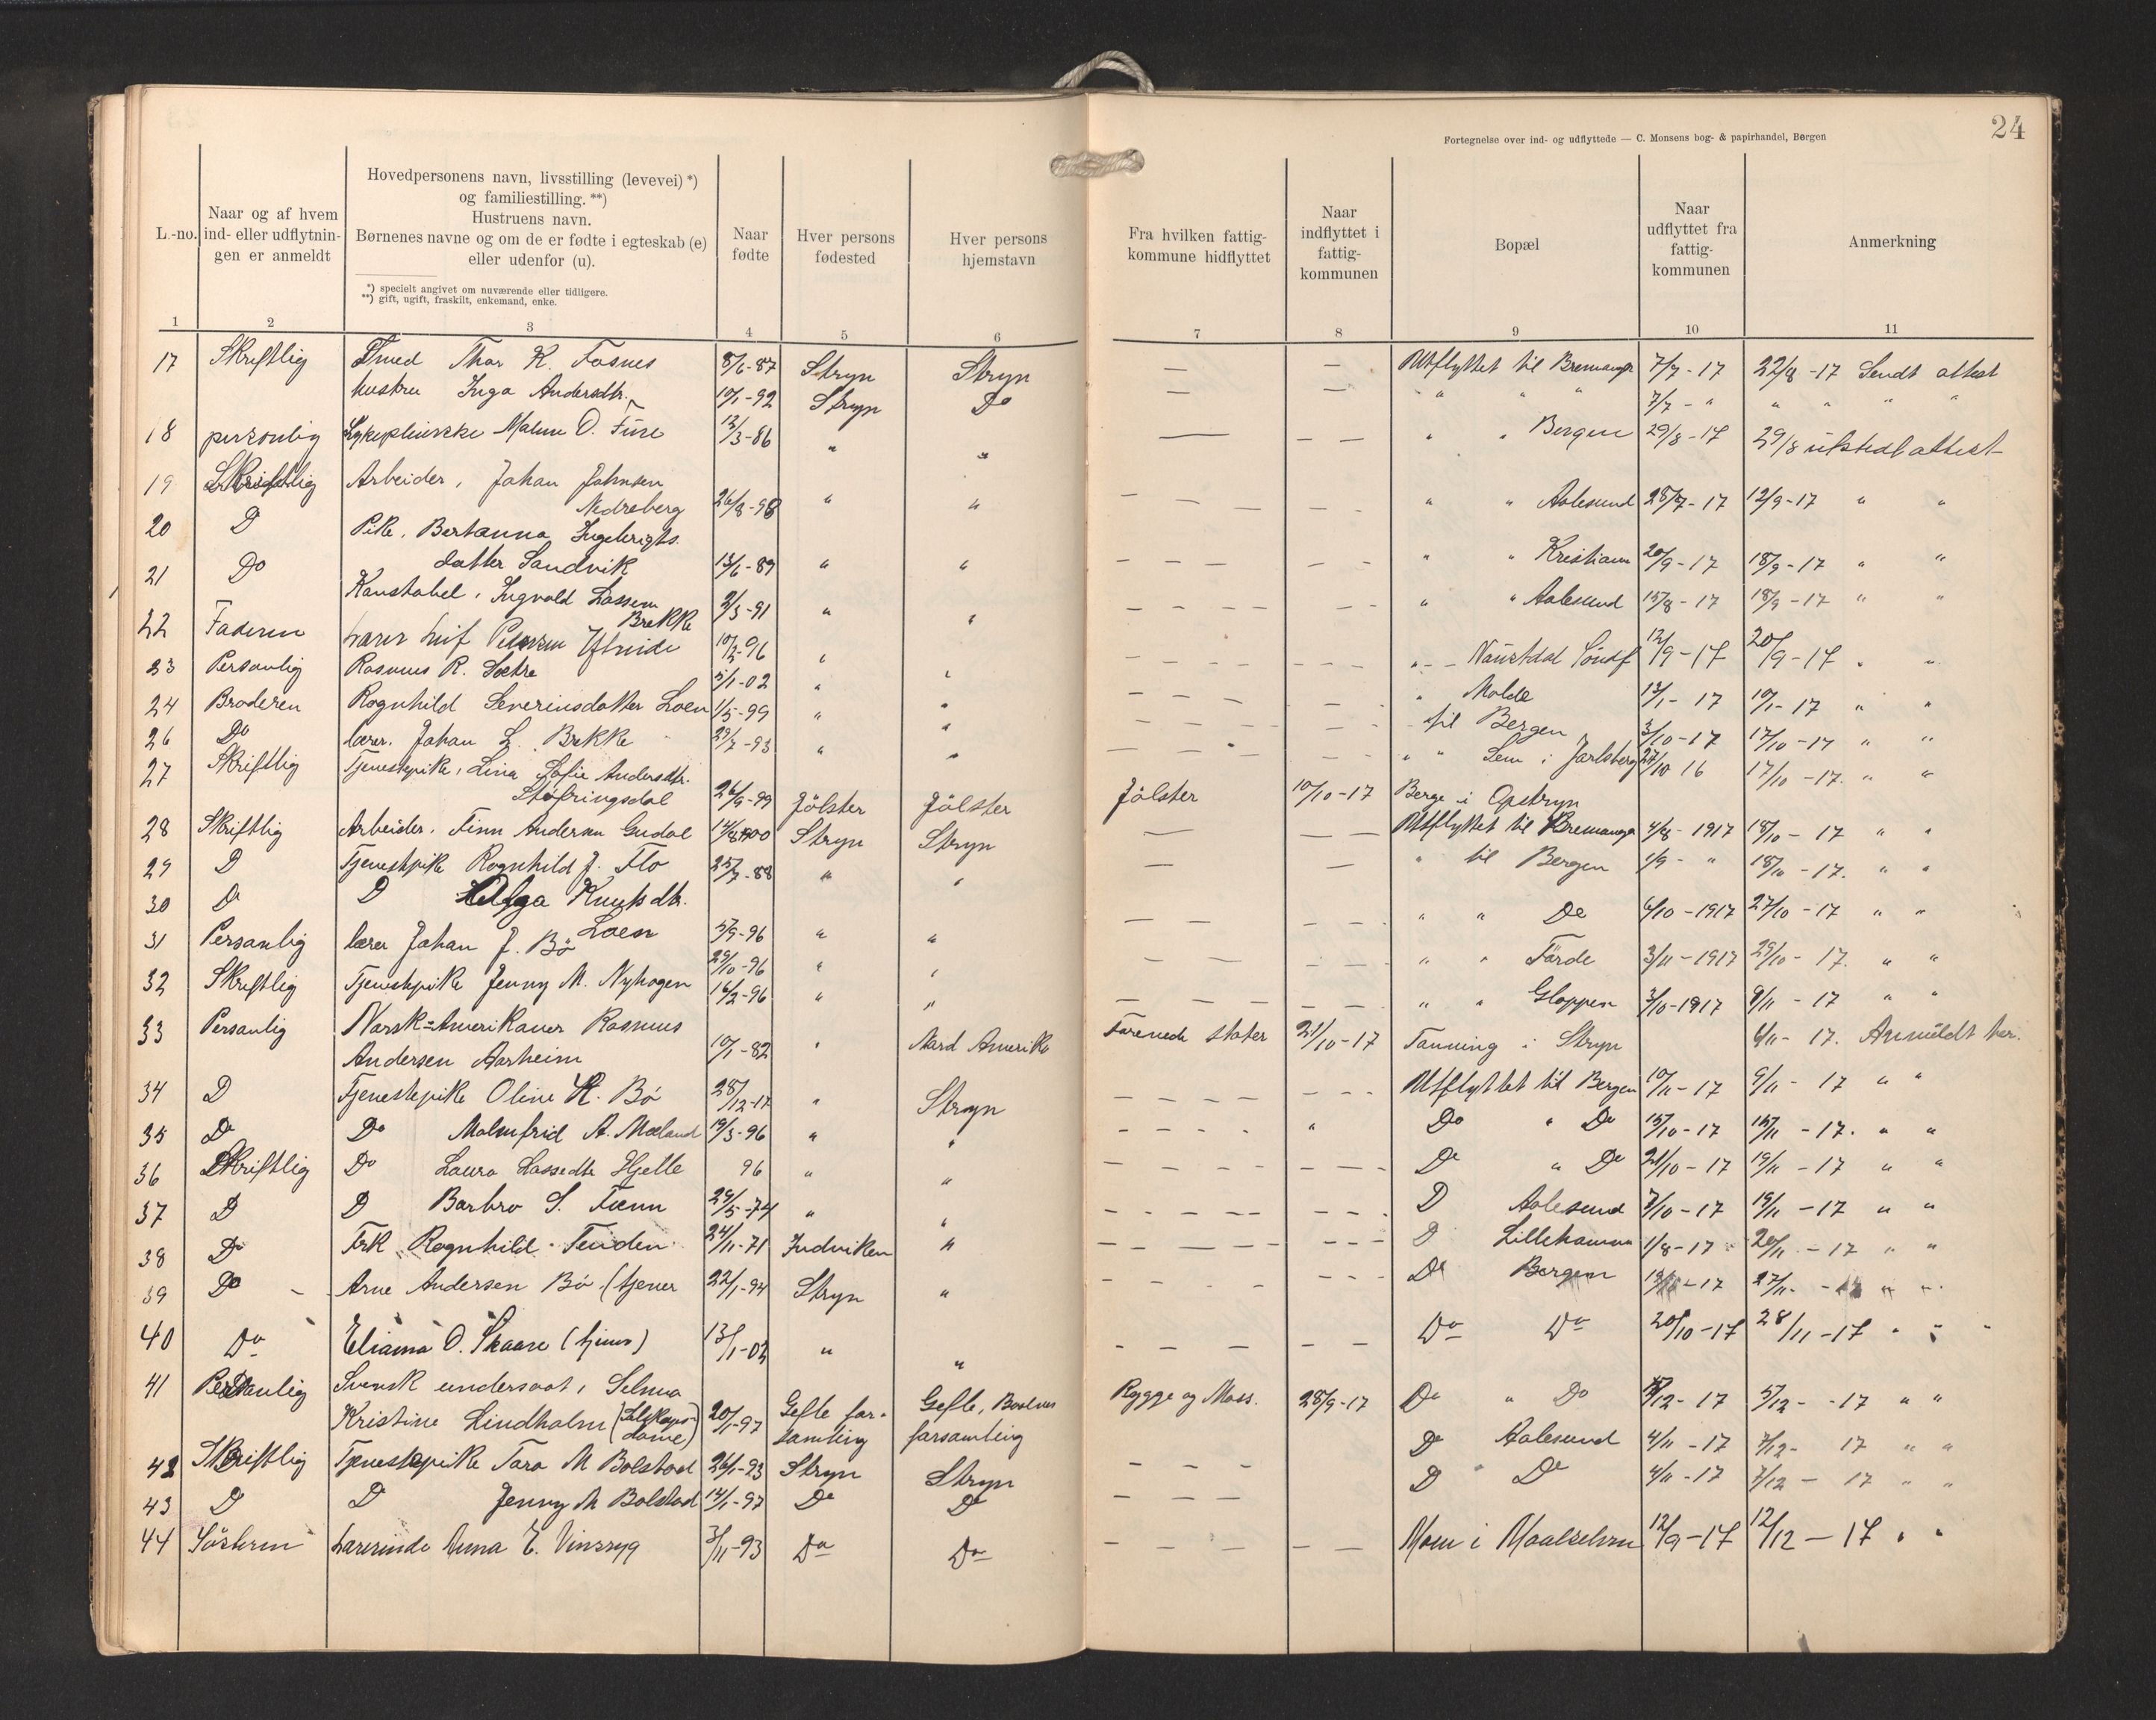 24
Fortegnelse over ind- og udflyttede — C. Monsens bog- & papirhandel, Bergen
L.-no.
Naar og af hvem
ind- eller udflytnin-
gen er anmeldt
Hovedpersonens navn, livsstilling (levevei) *)
og familiestilling. **)
Hustruens navn.
Børnenes navne og om de er fødte i egteskab (e)
eller udenfor (u).
*) specielt angivet om nuværende eller tidligere.
**) gift, ugift, fraskilt, enkemand, enke.
Naar
fødte
Hver persons
fødested
Hver persons
hjemstavn
Fra hvilken fattig-
kommune hidflyttet
Naar
indflyttet i
fattig-
kommunen
Bopæl
Naar
udflyttet fra
fattig-
kommunen
Anmerkning
1 2 3 4 5 6 7 8 9 10 11
17 Skriftlig Smed Thor K. Fosnes 8/6-87 Stryn Stryn — — Utflyttet til Bremanger 7/7-17 22/8-17 Sendt attest
hustru Inga Andersdtr. 10/1-92 Stryn Do — — " " " 7/7-" " " " "
18 personlig Sykepleierske Malene O. Fure 12/3-86 " " — — — " " Bergen 29/8-17 29/8 utstedt attest
19 Skriftlig Arbeider, Johan Johnsen
Nedreberg 26/8-98 " " — — — — — " " Aalesund 28/7-17 12/9-17 " "
20 D Pike, Bertanna Ingebrigts.
datter Sandvik 13/6-89 " " — — — — — — " " Kristiania 20/9-17 18/9-17 " "
21 Do Konstabel, Ingvald Lassen
Brekke 2/3-91 " " — — — — — — " " Aalesund 15/8-17 18/9-17 " "
22 Faderen Lærer Leif Petersen Ytreide 10/2-96 " " — — — — — — — " — Naustdal Søndf 12/9-17 20/9-17 " "
23 Personlig Rasmus R. Sætre 5/1-02 " " — — — — — — " Molde 13/1-17 10/1-17 " "
24 Broderen Ragnhild Severinsdatter Loen 1/5-99 " " — — — — — — til Bergen 3/10-17 17/10-17 " "
26 Do lærer. Johan L. Brekke 29/7-93 " " — — — — — — " " Sem i Jarlsberg 27/10 16 17/10-17. " "
27 Skriftlig Tjenestepike, Lina Sofie Andersdtr.
Støfringsdal 26/9-99 Jølster Jølster Jølster 10/10-17 Berge i Opstryn
28 Skriftlig Arbeider. Finn Andersen Gudal 14/8-900 Stryn Stryn — — — Utflyttet til Bremanger 4/8-1917 18/10-17 " "
29 D Tjenestpike Ragnhild J. Flo 25/7-88 " " — — " til Bergen 1/9-" 18/10-17. " "
30 Do D Helga Knutsdtr.
Loen 5/9-96 " " — — — — " " Do 6/10-1917 27/10-17 " "
31 Personlig lærer Johan J. Bø 29/10-96 " " — — — — — " " Førde 3/11-1917 29/10-17. " "
32 Skriftlig Tjenestepike Jenny M. Nyhagen 16/2-96 " " — — — — — — " " Gloppen 3/10-1917 9/11-17 " "
33 Personlig Norsk-Amerikaner Rasmus
Andersen Aarheim 10/1-82 " Nord Amerika Forenede stater 21/10-17 Tonning i Stryn 6/11-17. Anmeldt her.
34 D Tjenestepike Oline K. Bø 28/12-17 " Stryn — — — — — — — Utflyttet til Bergen 10/11-17 9/11-17 " "
35 Do Do Malmfrid A. Mæland 19/3-96 " " — — — — " Do " Do 15/10-17 15/11-17. " "
36 Skriftlig Do Laura Lassedtr Hjelle 96 " " — — — — — — — — Do " Do 21/10-17 19/11-17 " "
37 D D Barbro S. 29/5-74 " " — — — — — — — — D Aalesund 7/10-17 19/11-17 " "
38 Do Frk Ragnhild Tenden 24/11-71 Indviken " — — — — — — — D Lillehammer 1/8-17 20/11-17 " "
39 Do Arne Andersen Bø (tjener 22/1-94 Stryn " — — — — — — — Do Bergen -17 27/11- " "
40 Do Eliana O. Skaare (tjener) 13/1-02 " " — — — — — — Do Do 20/10-17 28/11-17 " " "
41 Personlig Svensk undersaat, Selma
Kristine Lindholm (Selskaps-
dame) 20/1-97 Gefle for-
samling Gefle,
forsamling Rygge og Moss. 28/9-17 Do " Do 5/12-17 5/12-17 " "
42 Skriftlig Tjenestepike Tora M Bolstad 26/1-93 Stryn Stryn — — — Do Aalesund 4/11-17 7/12-17 " "
43 D D Jenny M Bolstad 14/1-97 Do Do — — — D Do 4/11-17 7/12-17 " "
44 Søsteren Lærerinde Anna E. Vinsryg 3/11-93 Do Do — — — — — — Moen i Maalselven 12/9-17 12/12-17 " "